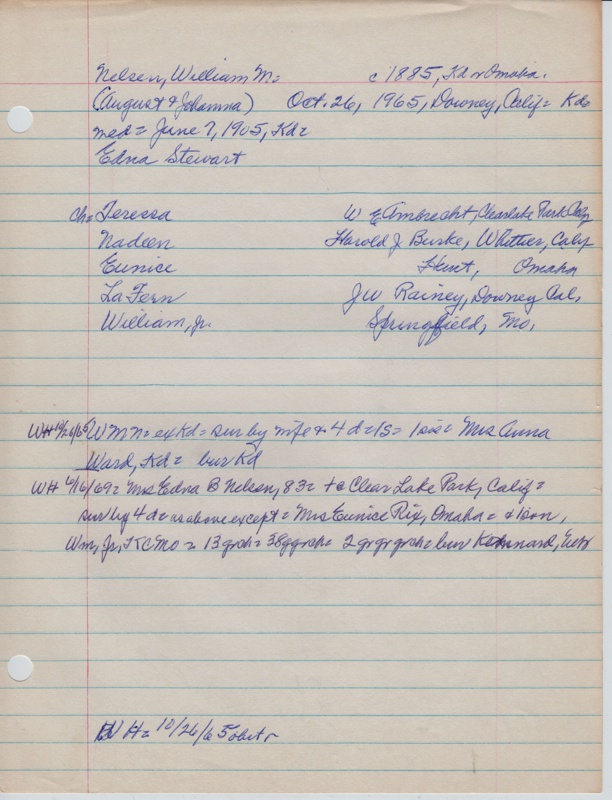 Nelsen, William M= c 1885, Kd or Omaha.
(August & Johanna) Oct. 26, 1965, Downey, Calif= Kd
med= June 7, 1905, Kd=
Edna Stewart
ch= Teressa W E Ambrecht, Clearlake Park Calif
Nadeen Harold J Burke, Whittier, Calif
Eunice Hunt, Omaha
LaFern JW Rainey, Downey Cal.
William, jr. Springfield, Mo.
WH 10/26/65 W M N= ex Kd= sur by wife & 4 d= 1S= 1 sis= Mrs Anna
Ward, Kd= bur Kd
WH 6/16/69= Mrs Edna B Nelsen, 83= to Clear Lake Park, Calif=
sur by 4 d= as above except= Mrs Eunice Rix, Omaha= & 1 son,
Wm, Jr, KC Mo= 13 grch= 38 ggrch= 2 gr gr grch= bur Kennard,
WH= 10/26/65 obit